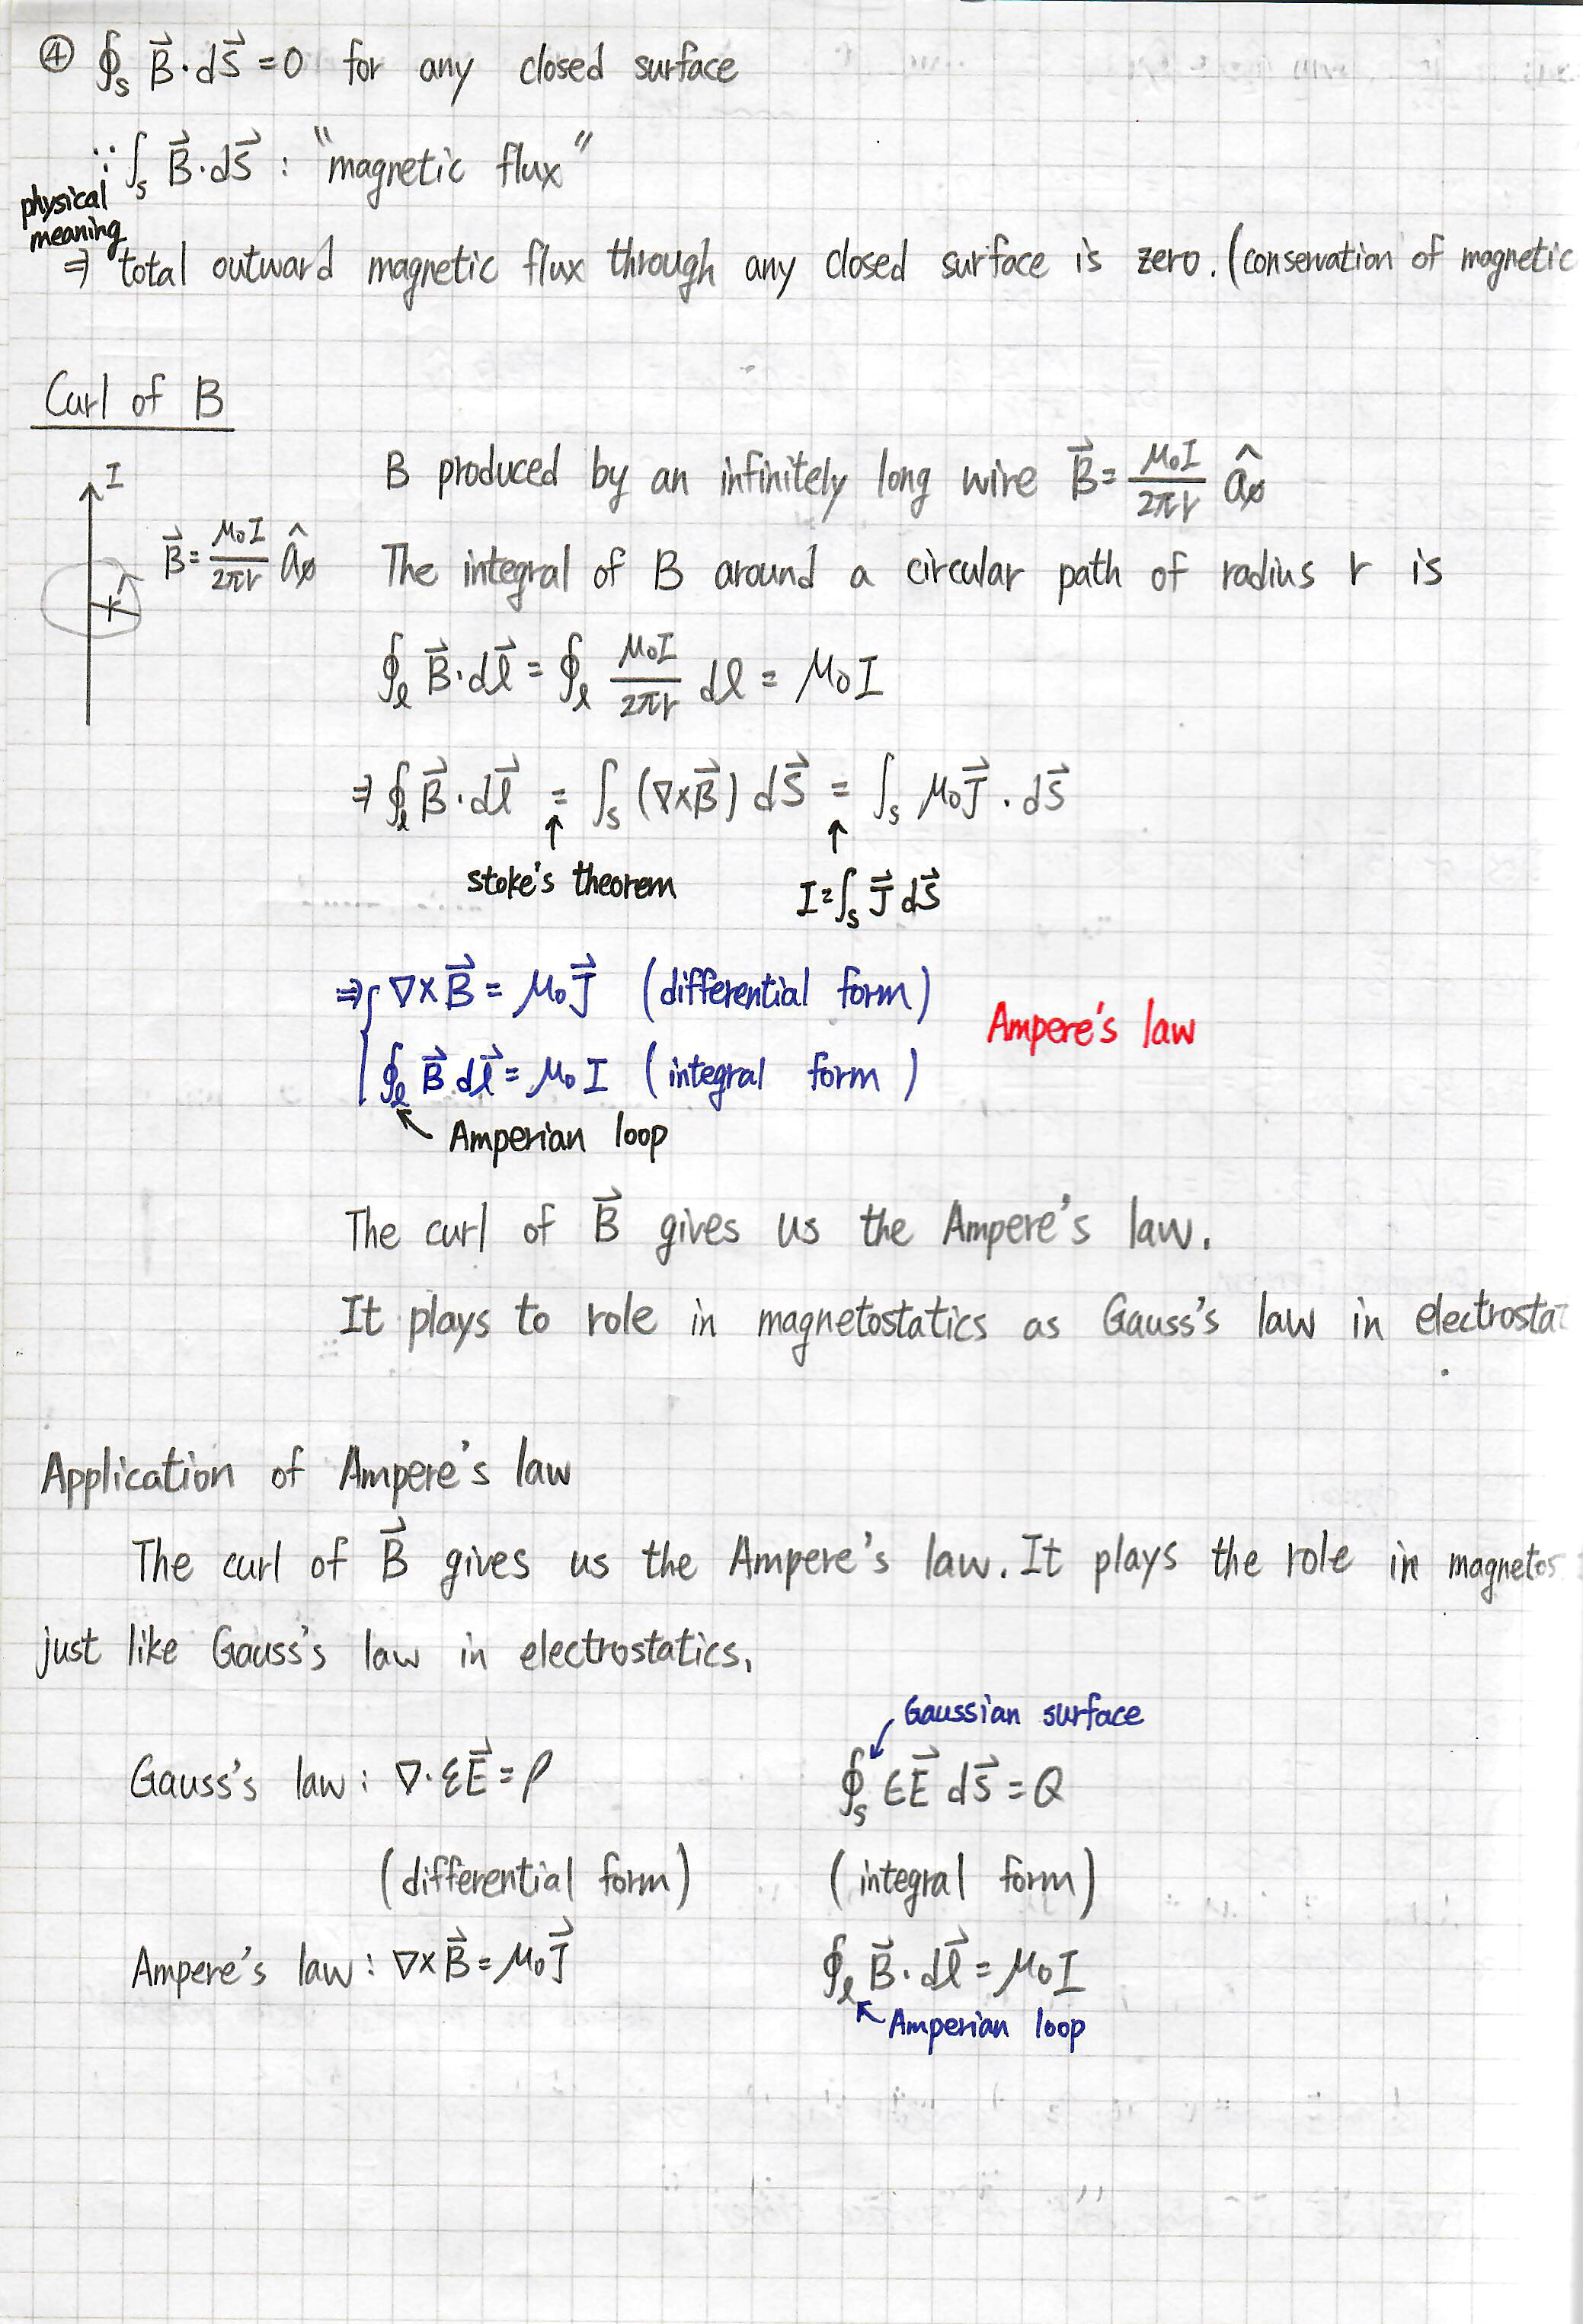 ④ ∮ₛ B⃗·dS⃗ = 0 for any closed surface
∵ ∫ₛ B⃗·dS⃗ : "magnetic flux"
physical
meaning
⇒ total outward magnetic flux through any closed surface is zero. (conservation of magnetic
Curl of B
I
B⃗ = μ₀I/2πr âφ
B produced by an infinitely long wire B⃗ = μ₀I/2πr âφ
The integral of B around a circular path of radius r is
∮ₗ B⃗·dl⃗ = ∮ₗ μ₀I/2πr dl = μ₀I
⇒ ∮ₗ B⃗·dl⃗ = ∫ₛ (∇×B⃗) dS⃗ = ∫ₛ μ₀J⃗·dS⃗
↑ ↑
stoke's theorem I=∫ₛ J⃗ dS⃗
⇒ ∇×B⃗ = μ₀J⃗ (differential form)
Ampere's law
∮ₗ B⃗ dl⃗ = μ₀I (integral form)
Amperian loop
The curl of B⃗ gives us the Ampere's law.
It plays to role in magnetostatics as Gauss's law in electrosta
Application of Ampere's law
The curl of B⃗ gives us the Ampere's law. It plays the role in magnetos
just like Gauss's law in electrostatics,
Gaussian surface
Gauss's law : ∇·εE⃗ = ρ ∮ₛ εE⃗ dS⃗ = Q
(differential form) (integral form)
Ampere's law : ∇×B⃗ = μ₀J⃗ ∮ₗ B⃗·dl⃗ = μ₀I
Amperian loop